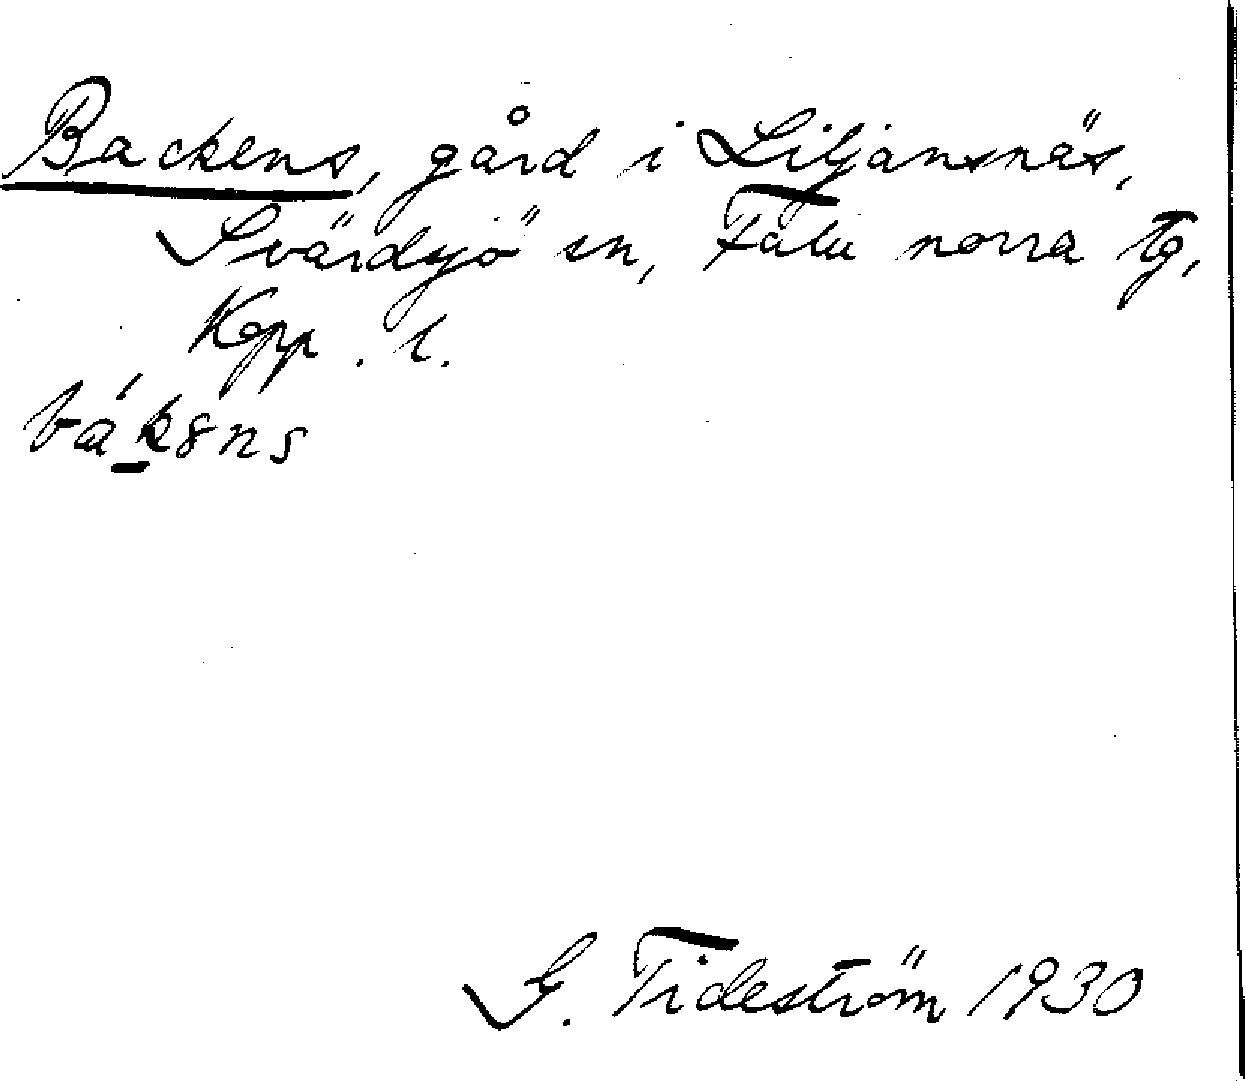 Backens, gård i Liljansnäs,
Svärdsjö sn, Falu norra tg,
Kopp. l.
G. Tideström 1930